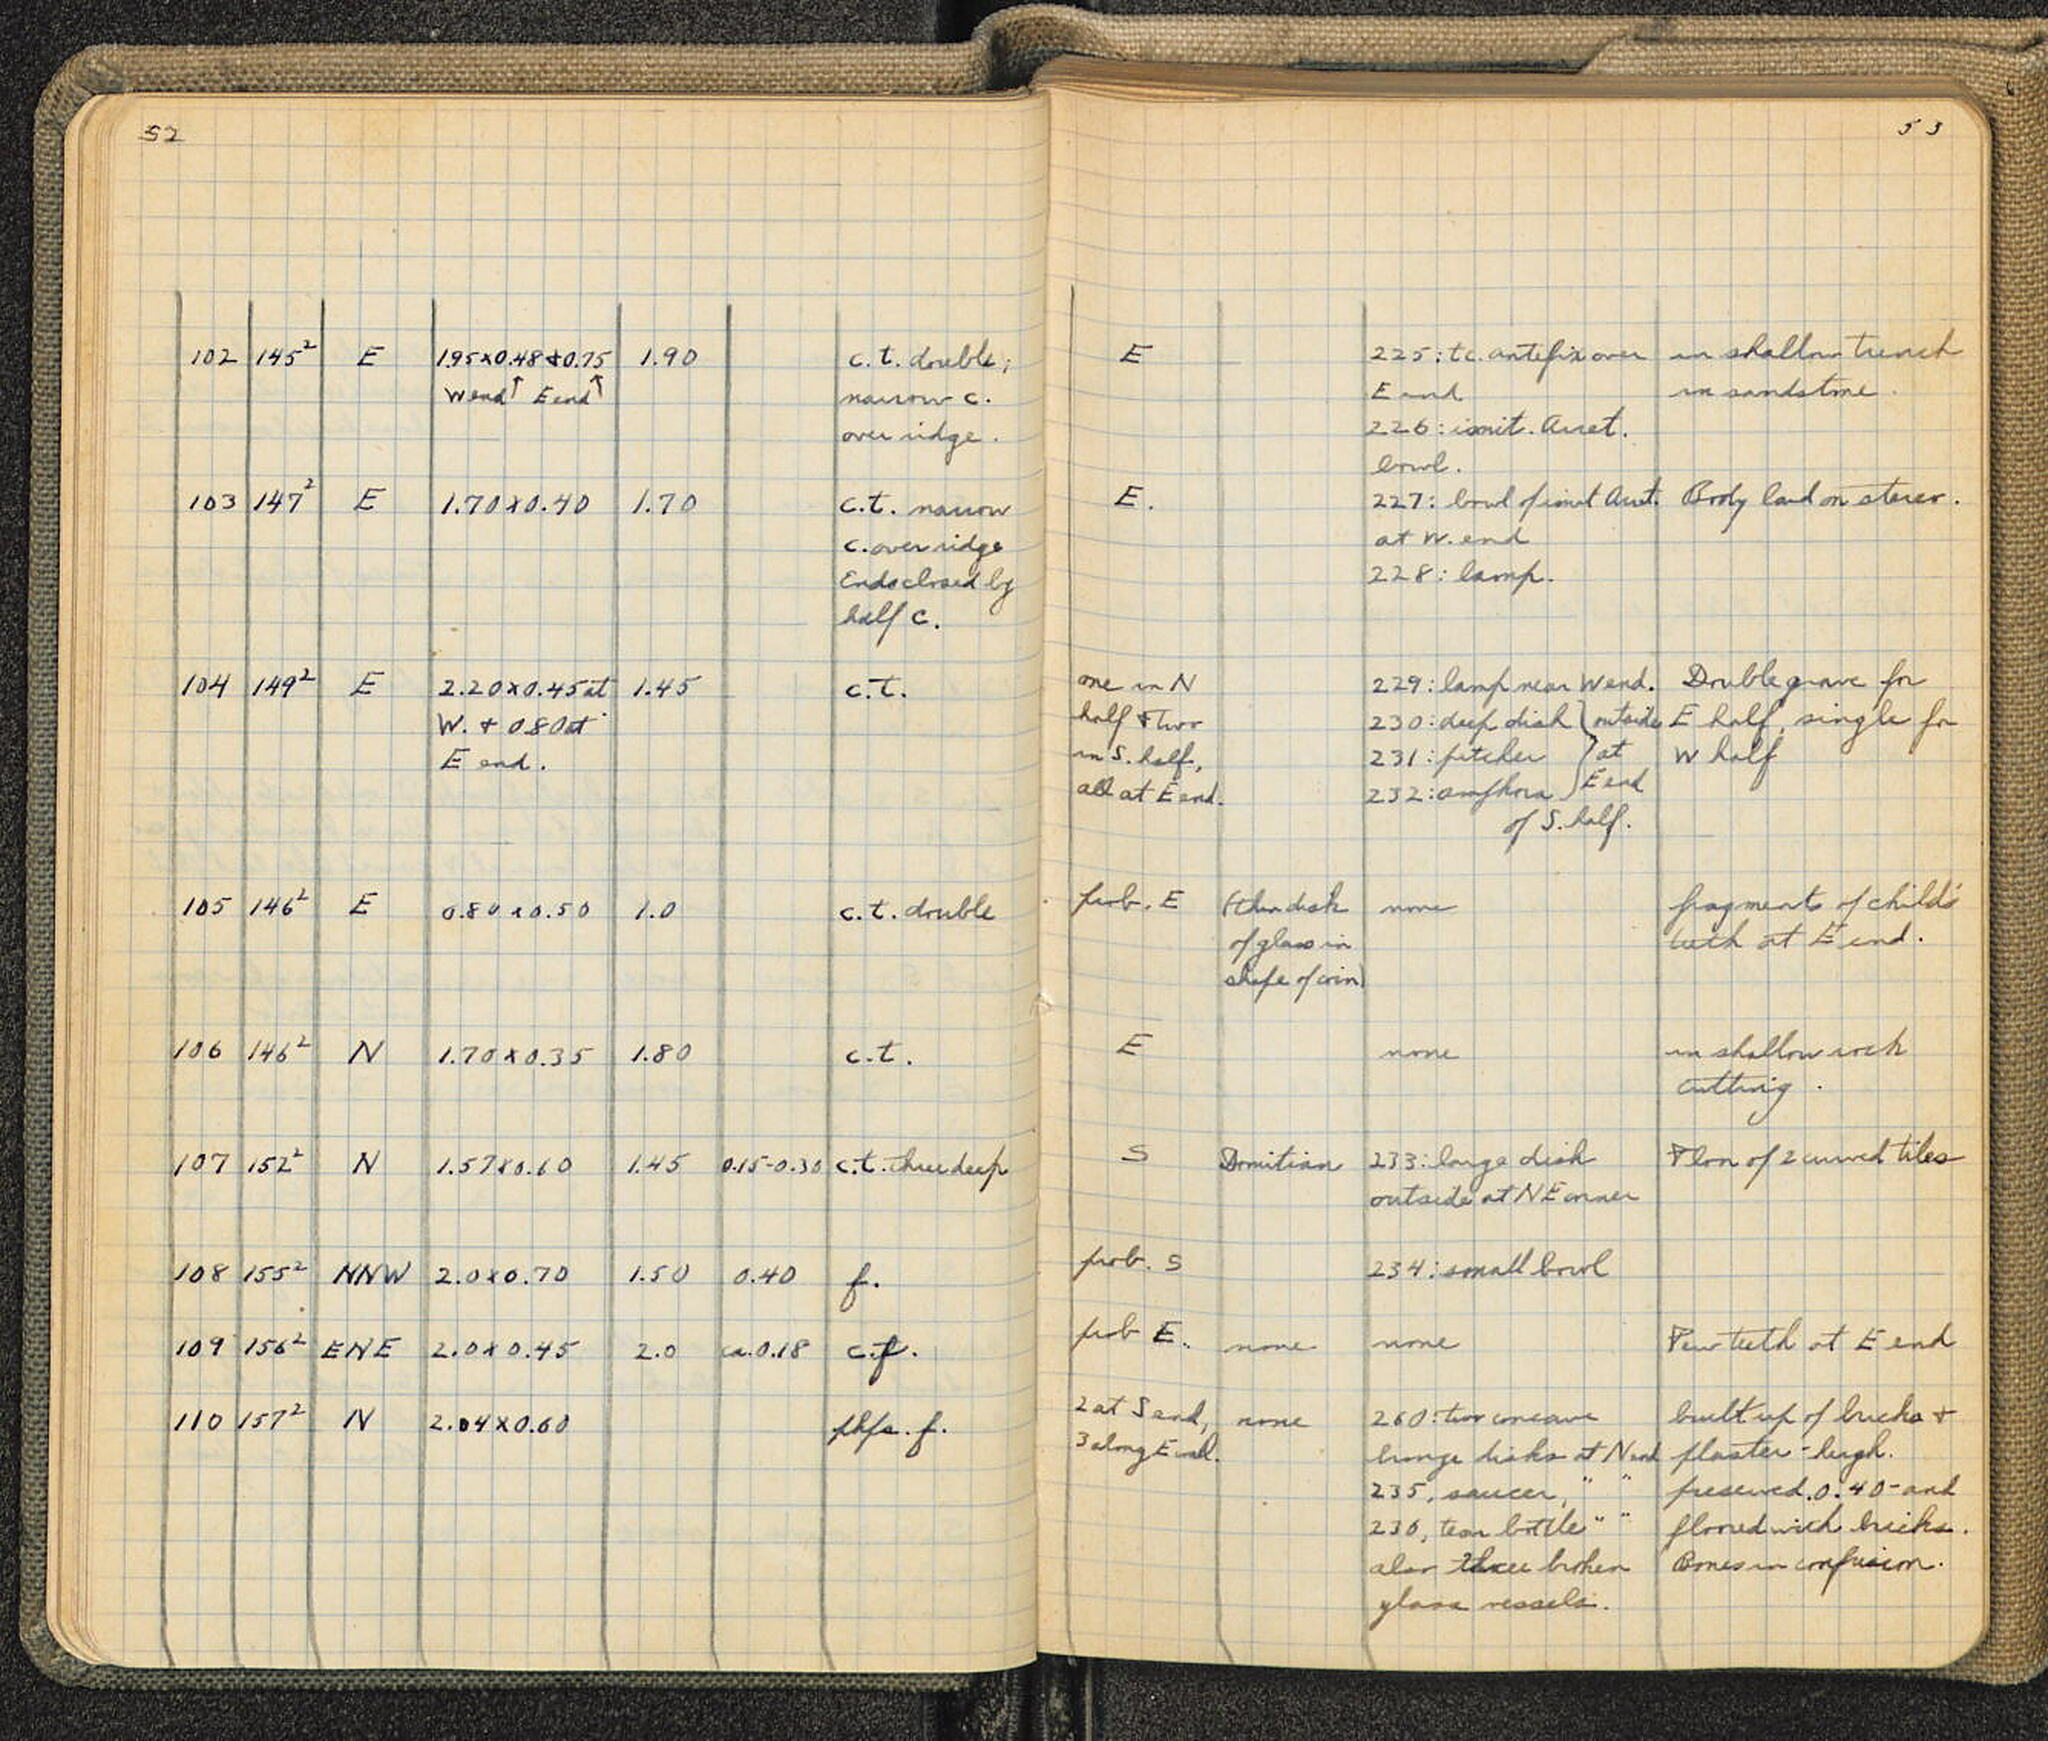 52
102 145² E 1.95x0.48 & 0.75 1.90 c.t. double;
W end↑ E end↑ narrow c.
over ridge.
103 147² E 1.70x0.40 1.70 c.t. narrow
c. over ridge
Ends closed by
half c.
104 149² E 2.20x0.45 at 1.45 c.t.
W. & 0.80 at
E end.
105 146² E 0.80x0.50 1.0 c.t. double
106 146² N 1.70x0.35 1.80 c.t.
107 152² N 1.57x0.60 1.45 0.15-0.30 c.t. three deep
108 155² NNW 2.0x0.70 1.50 0.40 f.
109 156² ENE 2.0x0.45 2.0 ca. 0.18 c.f.
110 157² N 2.04x0.60 phps. f.
53
E 225: tc. antefix over in shallow trench
E end in sandstone.
226: imit. Arret.
bowl.
E. 227: bowl of imit Arret. Body laid on stereo.
at W. end
228: lamp.
one in N 229: lamp near W end. Double grave for
half & two 230: deep dish } outside E half, single for
in S. half, 231: pitcher } at W half
all at E end. 232: amphora } E end
of S. half.
prob. E (thin disk none fragments of child's
of glass in teeth at E end.
shape of coin)
E none in shallow rock
cutting.
S Domitian 233: large dish Floor of 2 curved tiles
outside at NE corner
prob. S 234: small bowl
prob E. none none Few teeth at E end
2 at S end, none 260: two concave built up of bricks &
3 along E wall. bronze disks at N end plaster - heigh.
235, saucer, " " preserved 0.40 - and
236, tear bottle " " floored with bricks.
also three broken Bones in confusion.
glass vessels.